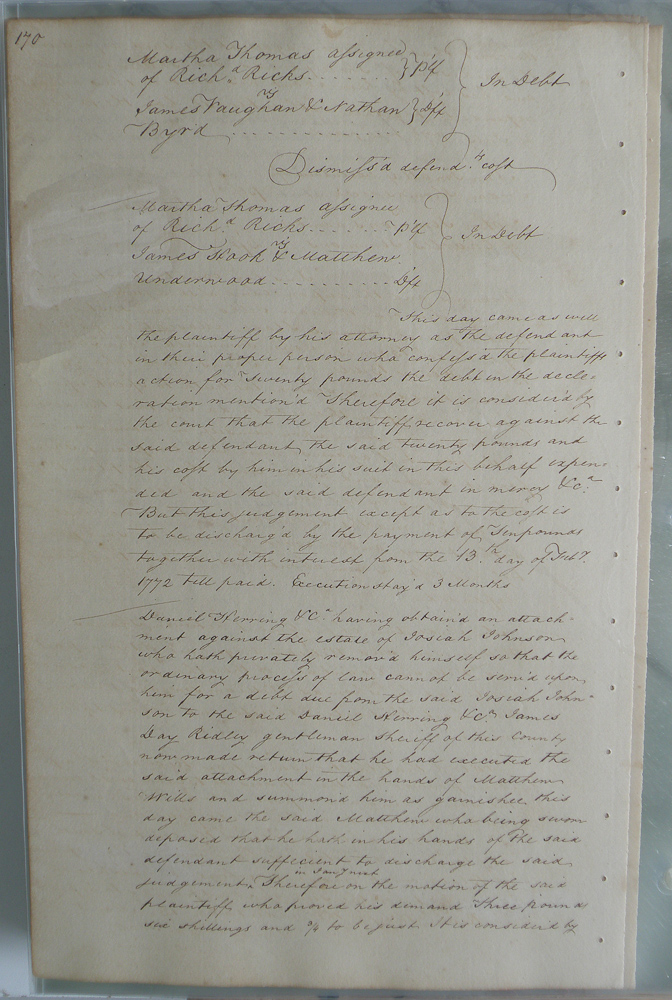 170
Martha Thomas assignee
of Rich.d Ricks . . . . . . . } Plf } In Debt
vs
James Vaughan & Nathan } Dft
Byrd . . . . . . . . . . . .
Dismiss'd defend.ts cost
Martha Thomas assignee
of Rich.d Ricks . . . . . . . Plf } In Debt
vs
James Hook & Matthew
Underwood . . . . . . . . . . Dft
This day came as well
the plaintiff by his attorney as the defendant
in their proper person who confess'd the plaintiffs
action for Twenty pounds the debt in the decla-
ration mention'd Therefore it is consider'd by
the court that the plaintiff recover against the
said defendant, the said twenty pounds and
his cost by him in his suit in this behalf expen
ded and the said defendant in mercy &c.a
But this judgement except as to the cost is
to be discharg'd by the payment of Ten pounds
together with interest from the 13.th day of Feb.y
1772 till paid. Execution stay'd 3 Months
Daniel Herring &C.a having obtain'd an attach-
ment against the estate of Josiah Johnson
who hath privately remov'd himself so that the
ordinary process of law cannot be serv'd upon
him for a debt due from the said Josiah John-
son to the said Daniel Herring &c.a James
Day Ridley gentleman Sheriff of this County
now made return that he had executed the
said attachment in the hands of Matthew
Wills and summon'd him as garnishee this
day came the said Matthew who being sworn
deposed that he hath in his hands of the said
defendant sufficient to discharge the said
judgement Therefore on the motion of the said
plaintiff who proved his demand Three pounds
six shillings and to be just. It is consider'd by